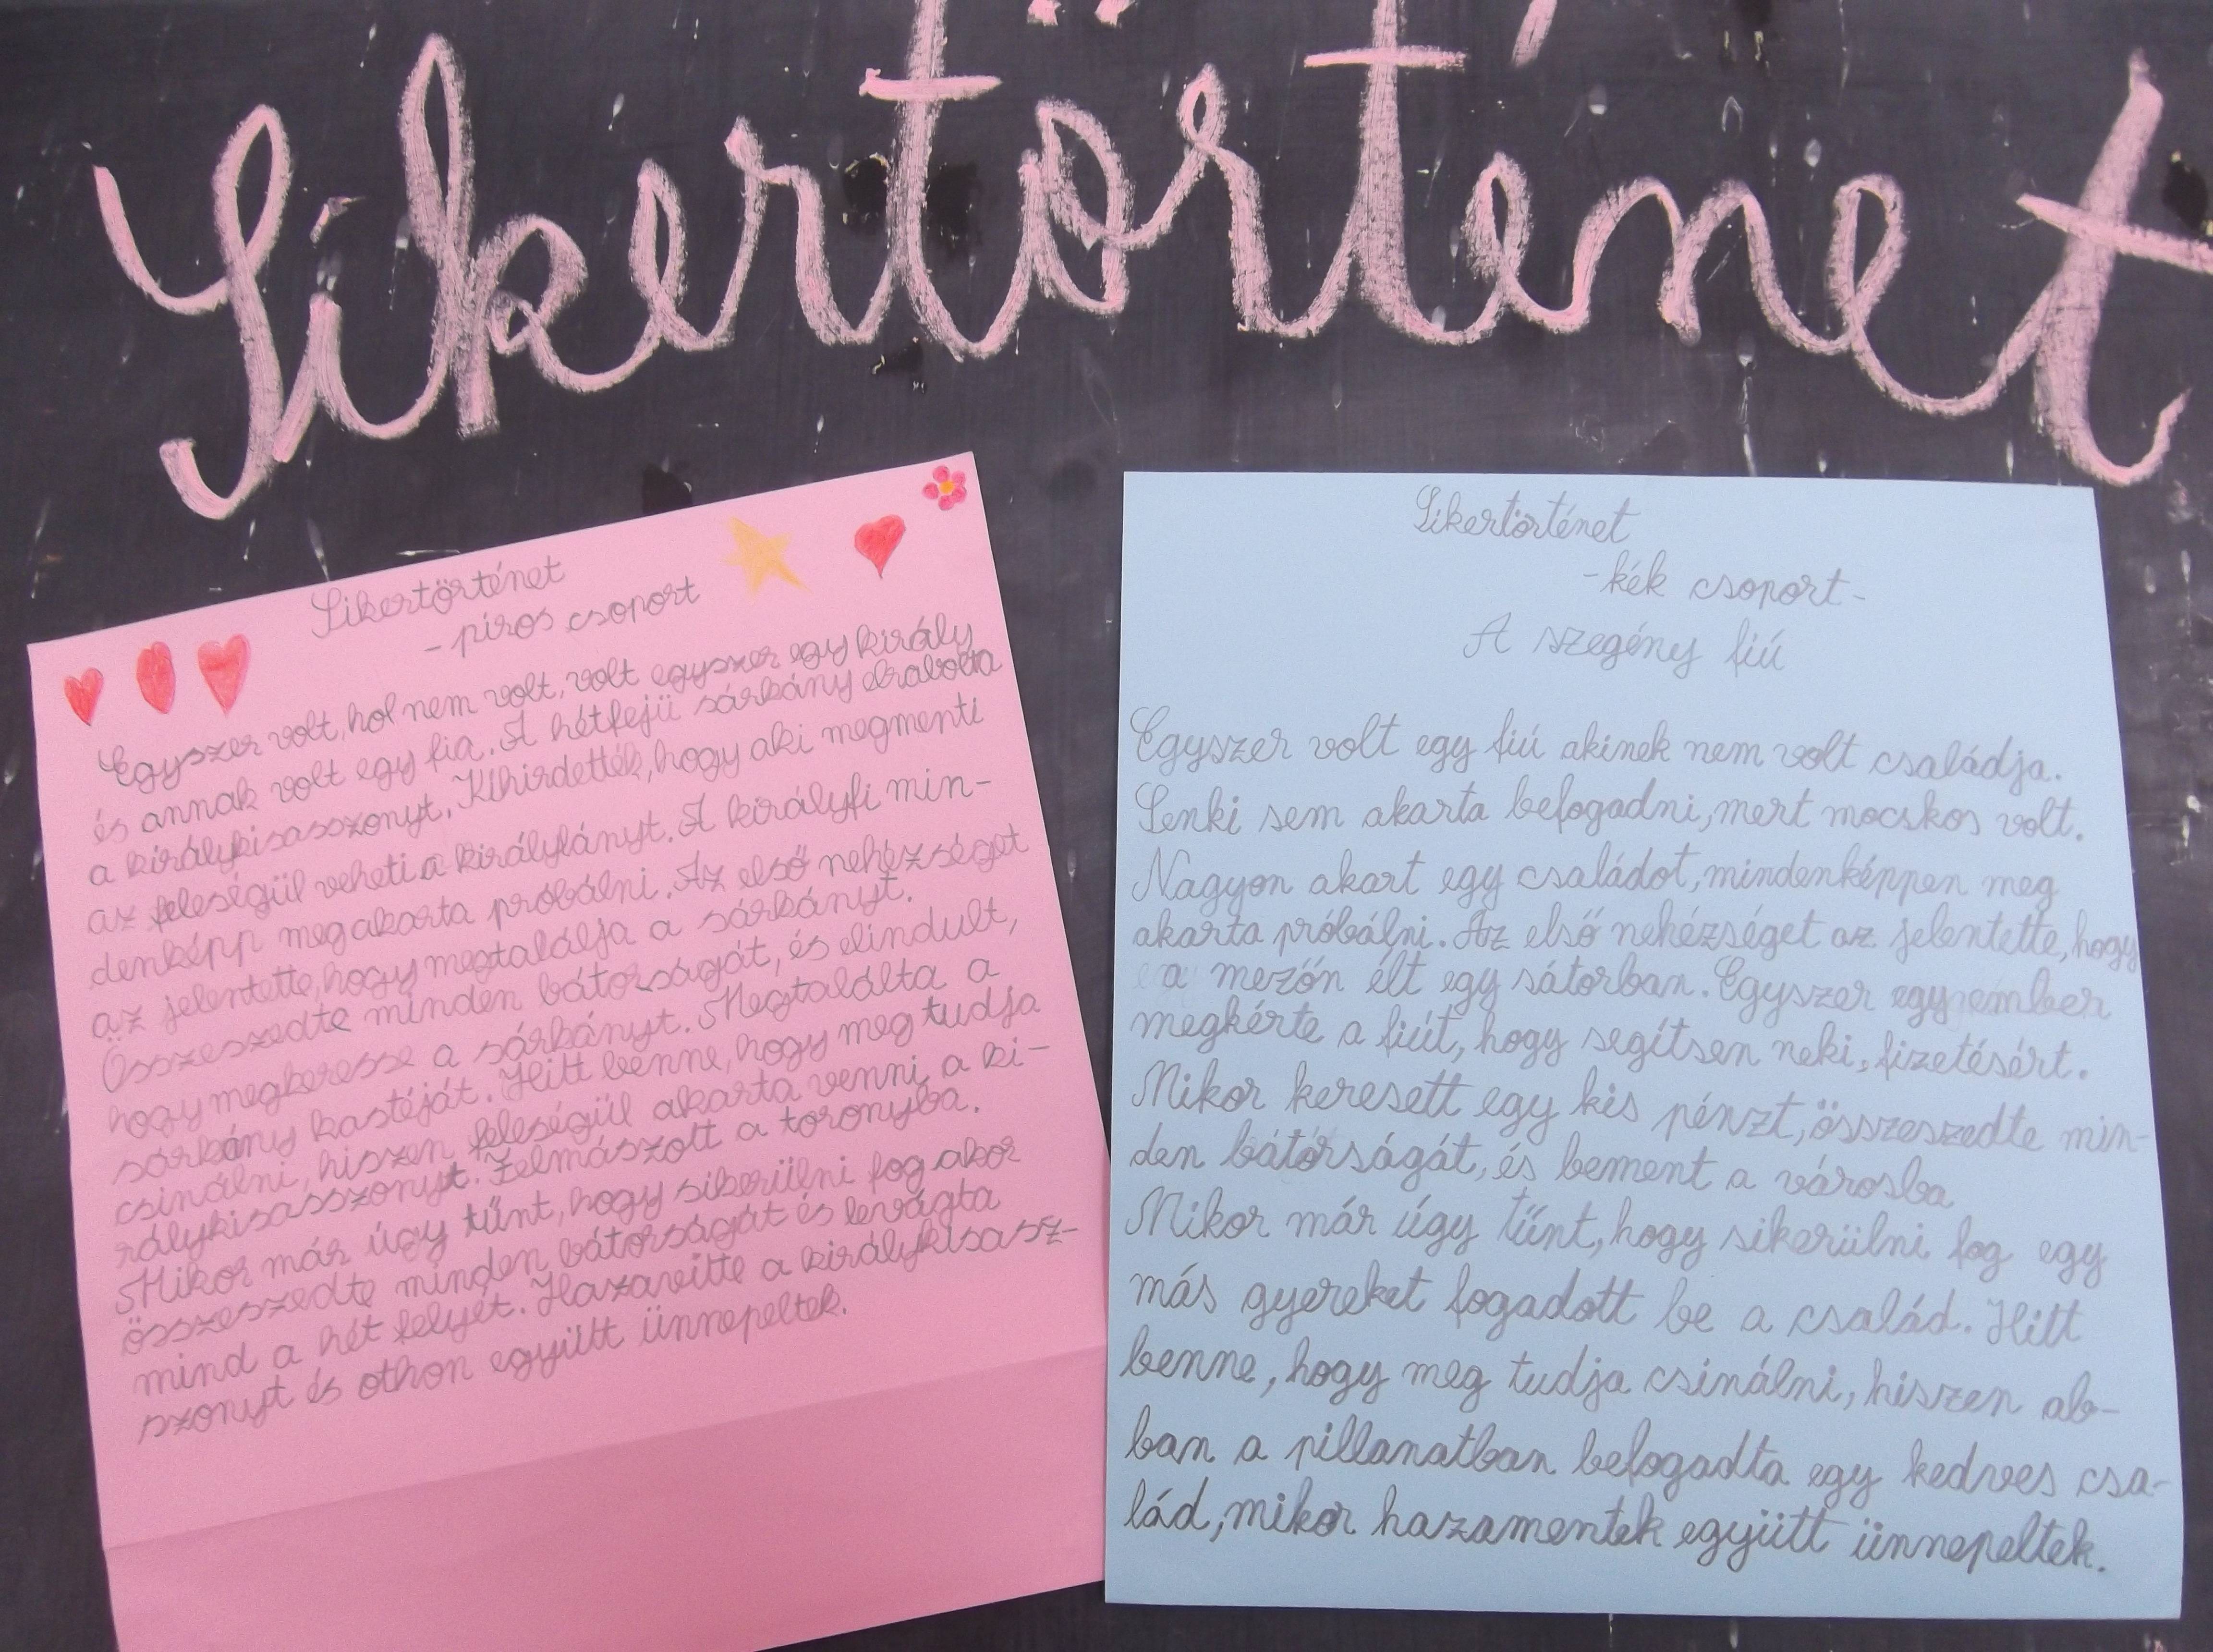 Sikertörténet
Sikertörténet
- piros csoport
Egyszer volt, hol nem volt, volt egyszer egy király
és annak volt egy fia. A hétfejü sárkány elrabolta
a királykisasszonyt. Kihirdették, hogy aki megmenti
az feleségül veheti a királylányt. A királyfi min-
denképp megakarta próbálni. Az első nehézséget
az jelentette, hogy megtalálja a sárkányt.
Összeszedte minden bátorságát, és elindult,
hogy megkeresse a sárkányt. Megtalálta a
sárkány kastéját. Hitt benne, hogy meg tudja
csinálni, hiszen feleségül akarta venni a ki-
rálykisasszonyt. Felmászott a toronyba.
Mikor már úgy tűnt, hogy sikerülni fog akor
összeszedte minden bátorságát és levágta
mind a hét felyét. Hazavitte a királykisasz-
szonyt és othon együtt ünnepeltek.
Sikertörténet
-kék csoport-
A szegény fiú
Egyszer volt egy fiú akinek nem volt családja.
Senki sem akarta befogadni, mert mocskos volt.
Nagyon akart egy családot, mindenképpen meg
akarta próbálni. Az első nehézséget az jelentette, hogy
a mezőn élt egy sátorban. Egyszer egy ember
megkérte a fiút, hogy segítsen neki, fizetésért.
Mikor keresett egy kis pénzt, összeszedte min-
den bátórságát, és bement a városba
Mikor már úgy tűnt, hogy sikerülni fog egy
más gyereket fogadott be a család. Hitt
benne, hogy meg tudja csinálni, hiszen ab-
ban a pillanatban befogadta egy kedves csa-
lád, mikor hazamentek együtt ünnepeltek.